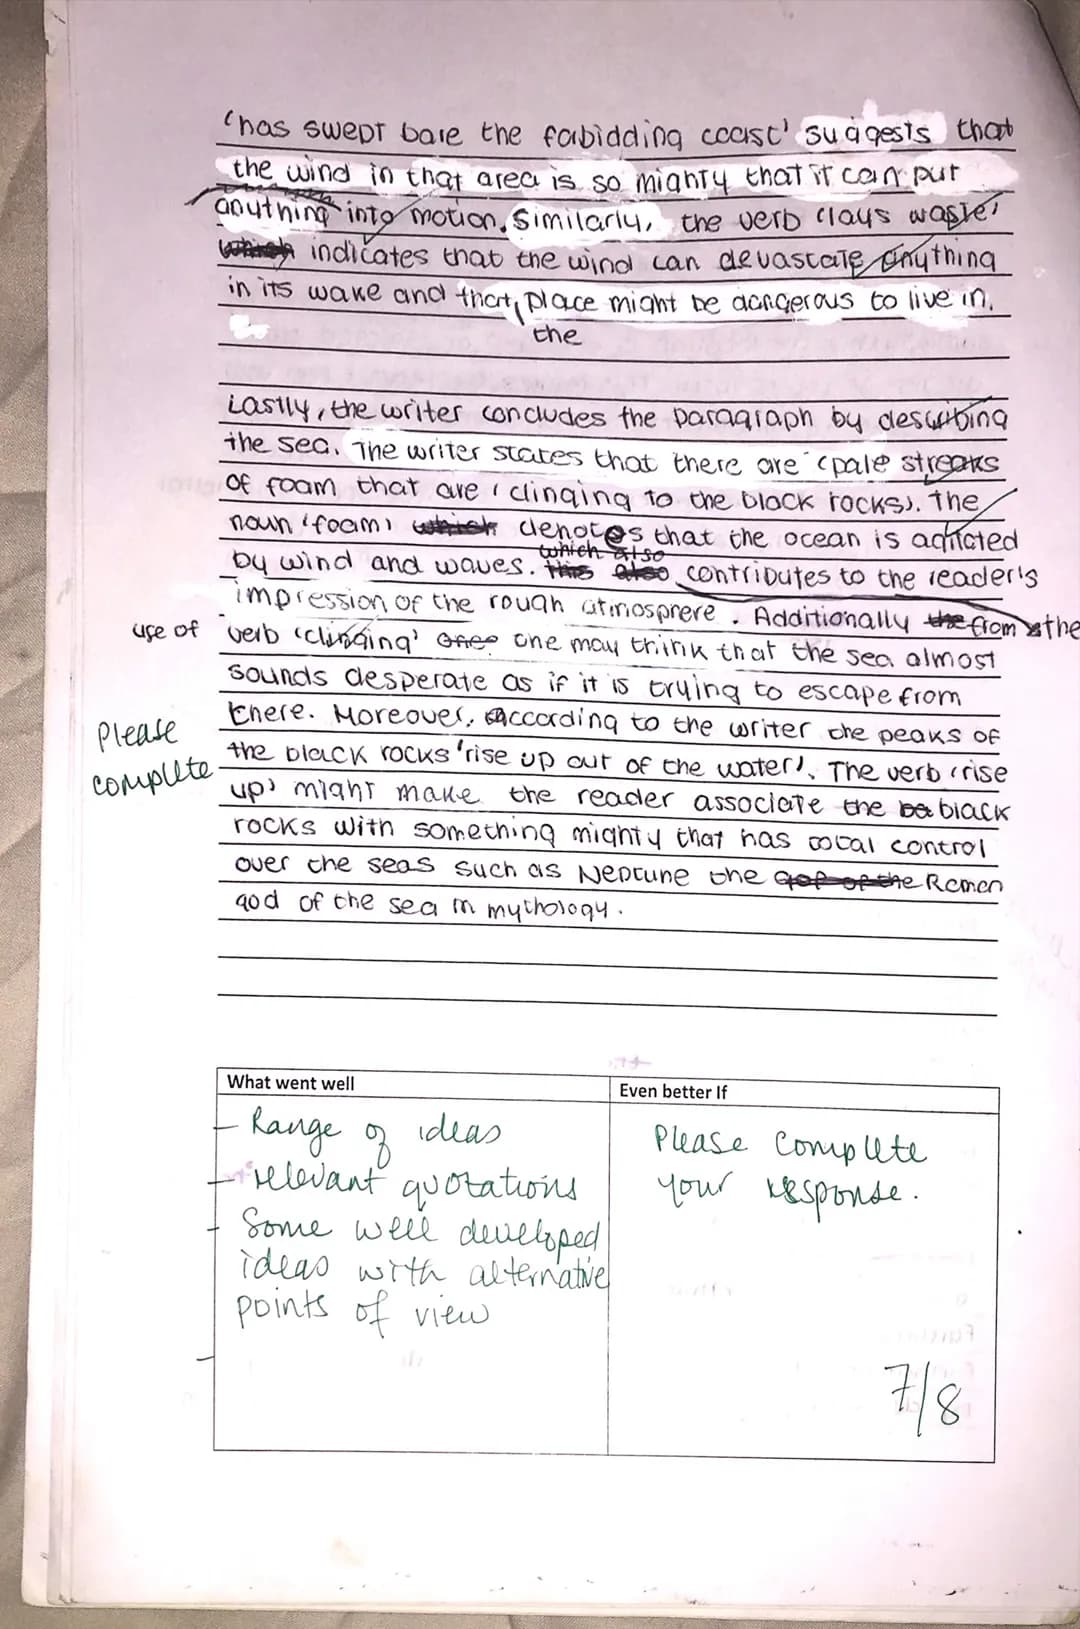 'has swept bare the fabidding coast' suggests that
the wind in that area is so mighty that it can put
anything into motion. Similarly, the verb 'lays waste'
which indicates that the wind can devastate anything
in its wake and that place might be dangerous to live in.
the
Lastly, the writer concludes the paragraph by describing
the sea. The writer states that there are 'pale streaks
of foam that are 'clinging to the black rocks'. The
noun 'foam' which denotes that the ocean is agitated
which also
by wind and waves. this also contributes to the reader's
impression of the rough atmosprere. Additionally the from the
use of verb 'clinging' one may think that the sea almost
sounds desperate as if it is trying to escape from
there. Moreover, according to the writer the peaks of
Please
complete
the black rocks 'rise up out of the water'. The verb 'rise
up' might make the reader associate the black
rocks with something mighty that has total control
over the seas such as Neptune the god of the Roman
god of the sea in mythology.
What went well
Even better If
- Range of ideas
- relevant quotations
- Some well developed
ideas with alternative
points of view
-
Please complete
your response.
7/8